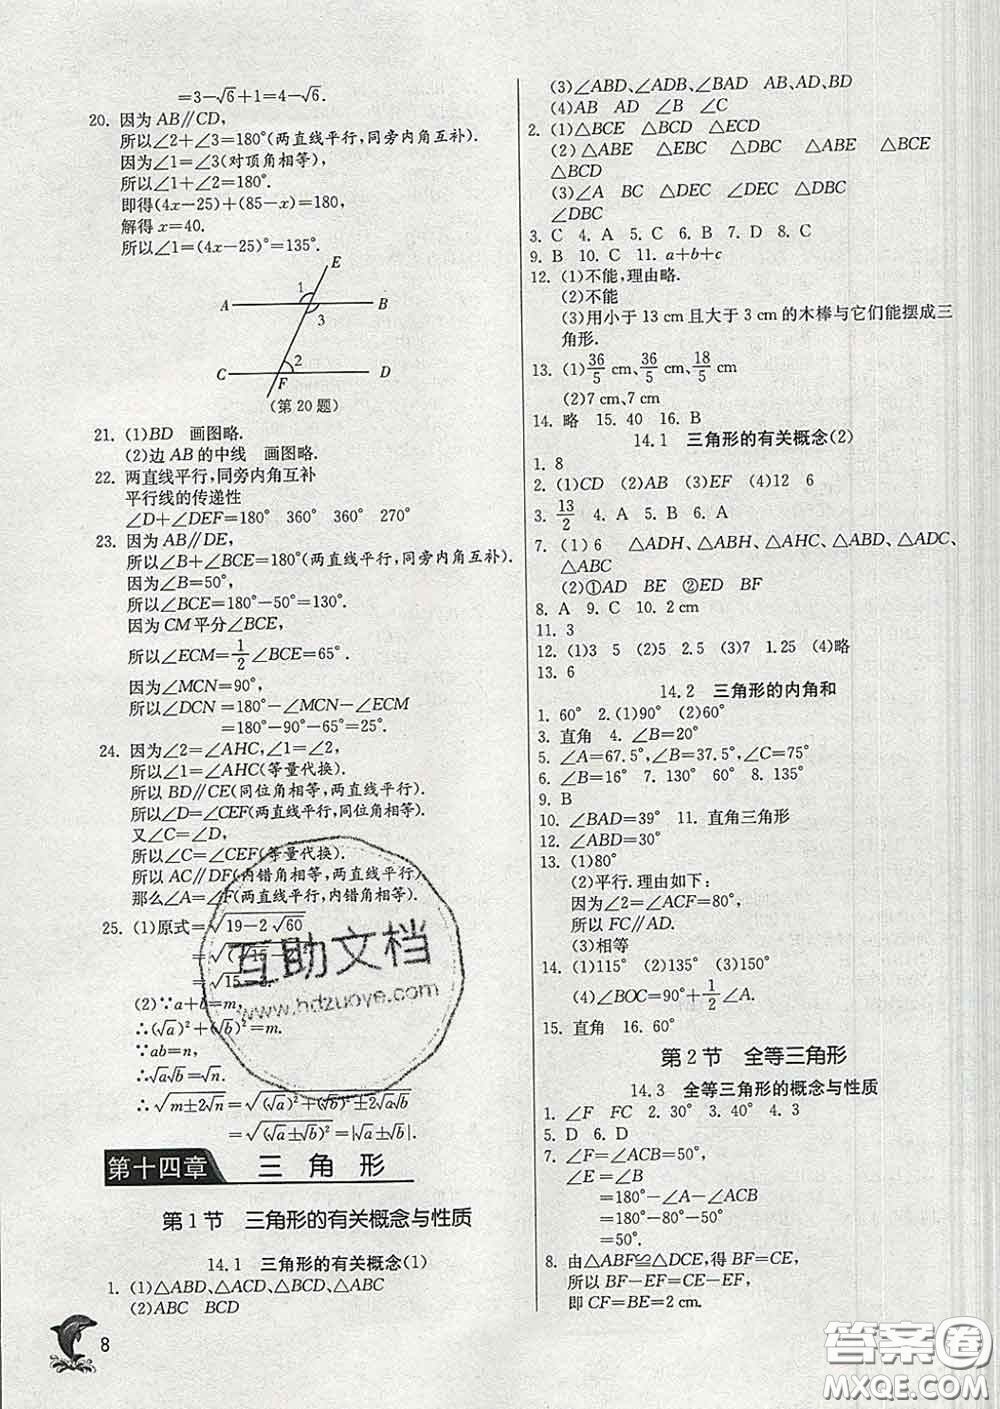 =3-√6+1=4-√6.
20. 因为 AB∥CD,
所以∠2+∠3=180°(两直线平行,同旁内角互补).
因为∠1=∠3(对顶角相等),
所以∠1+∠2=180°.
即得(4x-25)+(85-x)=180,
解得 x=40.
所以∠1=(4x-25)°=135°.
E
1
A B
3
2
C F D
(第 20 题)
21. (1)BD 画图略.
(2)边 AB 的中线 画图略.
22. 两直线平行,同旁内角互补
平行线的传递性
∠D+∠DEF=180° 360° 360° 270°
23. 因为 AB∥DE,
所以∠B+∠BCE=180°(两直线平行,同旁内角互补).
因为∠B=50°,
所以∠BCE=180°-50°=130°.
因为 CM 平分∠BCE,
所以∠ECM=1/2∠BCE=65°.
因为∠MCN=90°,
所以∠DCN=180°-∠MCN-∠ECM
=180°-90°-65°=25°.
24. 因为∠2=∠AHC,∠1=∠2,
所以∠1=∠AHC(等量代换).
所以 BD∥CE(同位角相等,两直线平行).
所以∠D=∠CEF(两直线平行,同位角相等).
又∠C=∠D,
所以∠C=∠CEF(等量代换).
所以 AC∥DF(内错角相等,两直线平行).
那么∠A=∠F(两直线平行,内错角相等).
25. (1)原式=√(19-2√60)
(2)∵a+b=m,
∴(√a)²+(√b)²=m.
∵ab=n,
∴√a√b=√n.
∴√(m±2√n)=√((√a)²+(√b)²±2√a√b)
=√((√a±√b)²)=|√a±√b|.
第十四章 三角形
第 1 节 三角形的有关概念与性质
14.1 三角形的有关概念(1)
1. (1)△ABD、△ACD、△BCD、△ABC
(2)ABC BCD
8
(3)∠ABD、∠ADB、∠BAD AB、AD、BD
(4)AB AD ∠B ∠C
2. (1)△BCE △BCD △ECD
(2)△ABE △EBC △ABD △ABE △BCE
△BCD
(3)∠A BC △DEC ∠DEC △DBC
∠DBC
3. C 4. A 5. C 6. B 7. D 8. C
9. B 10. C 11. a+b+c
12. (1)不能,理由略.
(2)不能
(3)用小于 13 cm 且大于 3 cm 的木棒与它们能摆成三
角形.
13. (1)36/5 cm、36/5 cm、18/5 cm
(2)7 cm、7 cm
14. 略 15. 40 16. B
14.1 三角形的有关概念(2)
1. 8
2. (1)CD (2)AB (3)EF (4)12 6
3. 13/2 4. A 5. B 6. A
7. (1)6 △ADH、△ABH、△AHC、△ABD、△ADC、
△ABC
(2)①AD BE ②ED BF
8. A 9. C 10. 2 cm
11. 3
12. (1)3 5 (2)5 2.5 (3)7 1.25 (4)略
13. 6
14.2 三角形的内角和
1. 60° 2. (1)90° (2)60°
3. 直角 4. ∠B=20°
5. ∠A=67.5°,∠B=37.5°,∠C=75°
6. ∠B=16° 7. 130° 60° 8. 135°
9. B
10. ∠BAD=39° 11. 直角三角形
12. ∠ABD=30°
13. (1)80°
(2)平行.理由如下:
因为∠2=∠ACF=80°,
所以 FC∥AD.
(3)相等
14. (1)115° (2)135° (3)150°
(4)∠BOC=90°+1/2∠A.
15. 直角 16. 60°
第 2 节 全等三角形
14.3 全等三角形的概念与性质
1. ∠F FC 2. 30° 3. 40° 4. 3
5. D 6. D
7. ∠F=∠ACB=50°,
∠E=∠B
=180°-∠A-∠ACB
=180°-80°-50°
=50°.
8. 由△ABF≌△DCE,得 BF=CE,
所以 BF-EF=CE-EF,
即 CF=BE=2 cm.
互助文档
www.hdzuoye.com
答案圈
MXQE.COM